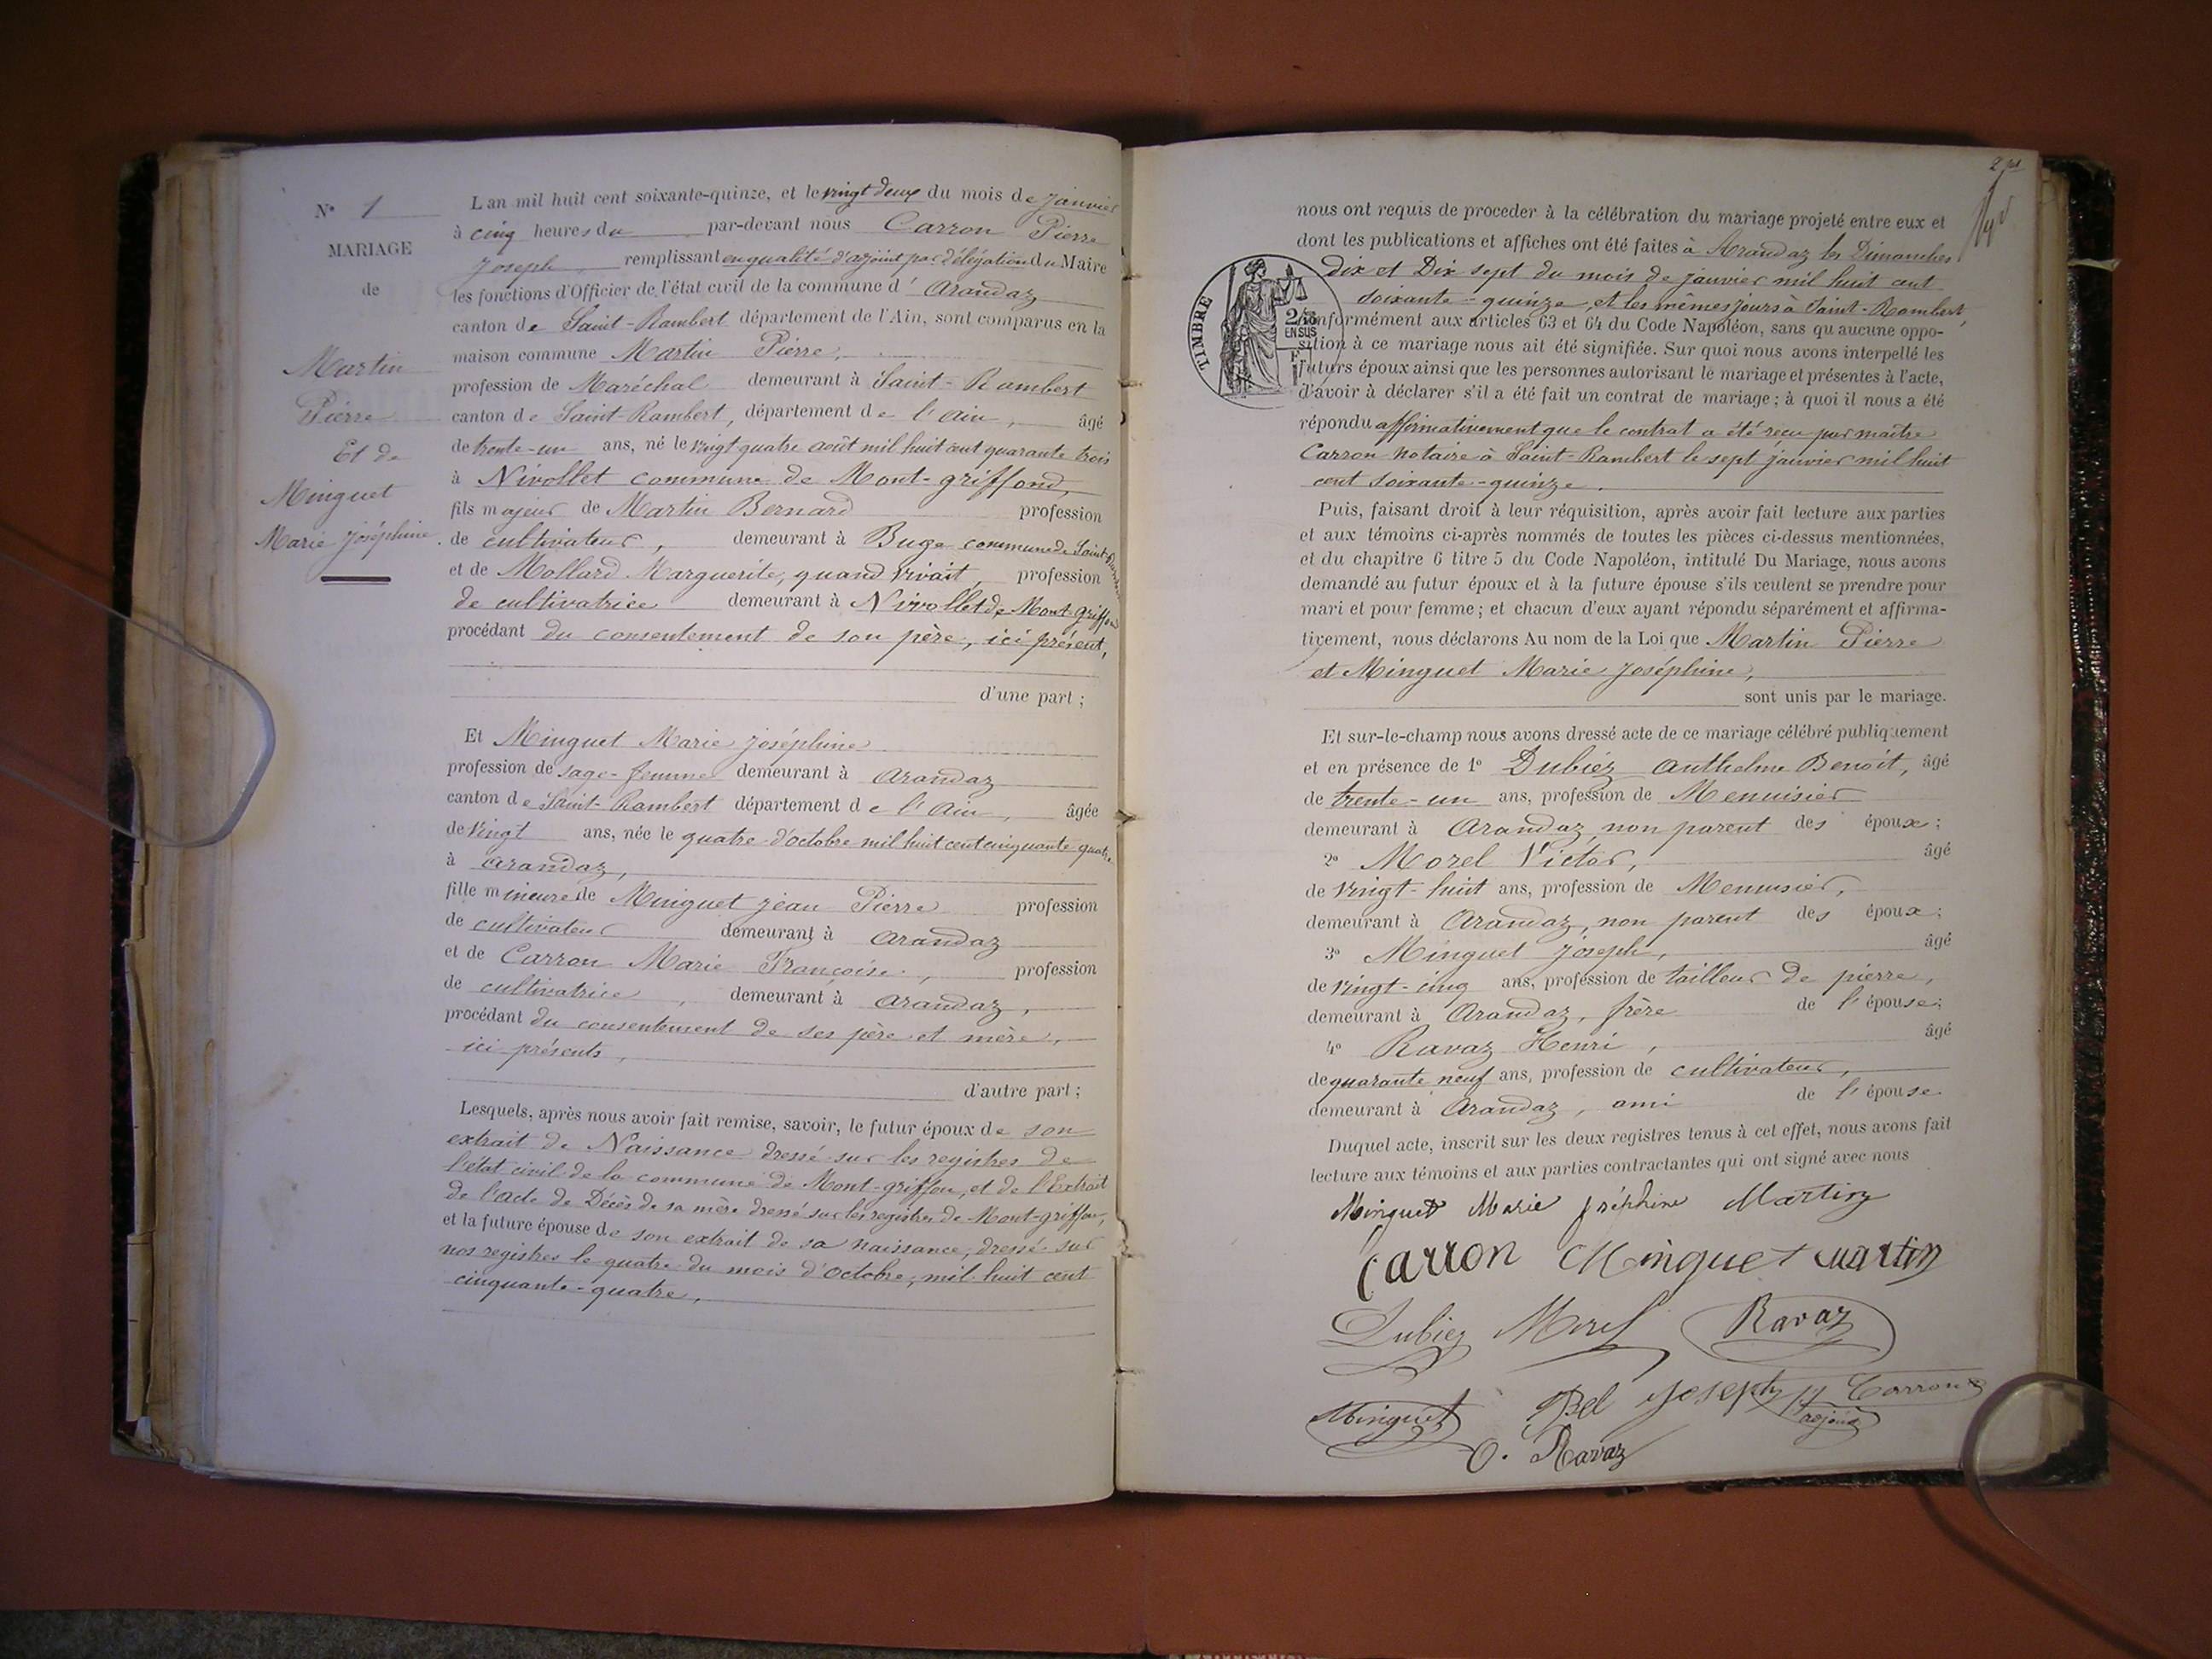 N° 1
MARIAGE
de
Martin
Pierre
Et de
Minguet
Marie Joséphine.
L an mil huit cent soixante-quinze, et le vingt deux du mois de Janvier
à cinq heures du par-devant nous Carron Pierre
Joseph remplissant en qualité d'adjoint par délégation du Maire
les fonctions d'Officier de l'état civil de la commune d' Arandaz
canton de Saint-Rambert département de l'Ain, sont comparus en la
maison commune Martin Pierre,
profession de Maréchal demeurant à Saint-Rambert
canton de Saint-Rambert, département de l'ain, âgé
de trente-un ans, né le vingt quatre août mil huit cent quarante trois
à Nivollet commune de Mont-griffond,
fils majeur de Martin Bernard profession
de cultivateur, demeurant à Buge commune de Saint-Rambert
et de Mollard Marguerite, quand vivait, profession
de cultivatrice demeurant à Nivollet de Mont-griffon
procédant du consentement de son père, ici présent,
d'une part ;
Et Minguet Marie Joséphine
profession de sage-femme demeurant à Arandaz
canton de Saint-Rambert département de l'Ain, âgée
de vingt ans, née le quatre d'octobre mil huit cent cinquante-quatre
à Arandaz,
fille mineure de Minguet Jean Pierre profession
de cultivateur demeurant à Arandaz
et de Carron Marie Françoise, profession
de cultivatrice, demeurant à Arandaz,
procédant du consentement de ses père et mère,
ici présents,
d'autre part ;
Lesquels, après nous avoir fait remise, savoir, le futur époux de son
extrait de Naissance dressé sur les registres de
l'état civil de la commune de Mont-griffon, et de l'Extrait
de l'acte de Décès de sa mère dressé sur les registres de Mont-griffon,
et la future épouse de son extrait de sa naissance, dressé sur
nos registres le quatre du mois d'octobre, mil huit cent
cinquante-quatre,
nous ont requis de proceder à la célébration du mariage projeté entre eux et
dont les publications et affiches ont été faites à Arandaz les Dimanches
dix et Dix sept du mois de janvier mil huit cent
soixante-quinze, et les mêmes jours à Saint-Rambert,
TIMBRE
EN SUS
conformément aux articles 63 et 64 du Code Napoléon, sans qu aucune oppo-
sition à ce mariage nous ait été signifiée. Sur quoi nous avons interpellé les
futurs époux ainsi que les personnes autorisant le mariage et présentes à l'acte,
d'avoir à déclarer s'il a été fait un contrat de mariage ; à quoi il nous a été
répondu affirmativement que le contrat a été reçu par maître
Carron Notaire à Saint-Rambert le sept janvier mil huit
cent soixante-quinze.
Puis, faisant droit à leur réquisition, après avoir fait lecture aux parties
et aux témoins ci-après nommés de toutes les pièces ci-dessus mentionnées,
et du chapitre 6 titre 5 du Code Napoléon, intitulé Du Mariage, nous avons
demandé au futur époux et à la future épouse s'ils veulent se prendre pour
mari et pour femme ; et chacun d'eux ayant répondu séparément et affirma-
tivement, nous déclarons Au nom de la Loi que Martin Pierre
et Minguet Marie Joséphine,
sont unis par le mariage.
Et sur-le-champ nous avons dressé acte de ce mariage célébré publiquement
et en présence de 1° Dubiez Anthelme Benoit, âgé
de trente-un ans, profession de Menuisier
demeurant à Arandaz, non parent des époux ;
2° Morel Victor, âgé
de vingt-huit ans, profession de Menuisier,
demeurant à Arandaz, non parent des époux ;
3° Minguet Joseph, âgé
de vingt-cinq ans, profession de tailleur de pierre,
demeurant à Arandaz, frère de l'épouse ;
4° Ravaz Henri, âgé
de quarante neuf ans, profession de cultivateur,
demeurant à Arandaz, ami de l'épouse
Duquel acte, inscrit sur les deux registres tenus à cet effet, nous avons fait
lecture aux témoins et aux parties contractantes qui ont signé avec nous
Minguet Marie Joséphine Martin
Carron Minguet Martin
Dubiez Morel Ravaz
Minguet Bel Joseph Carron
adjoint
O. Ravaz